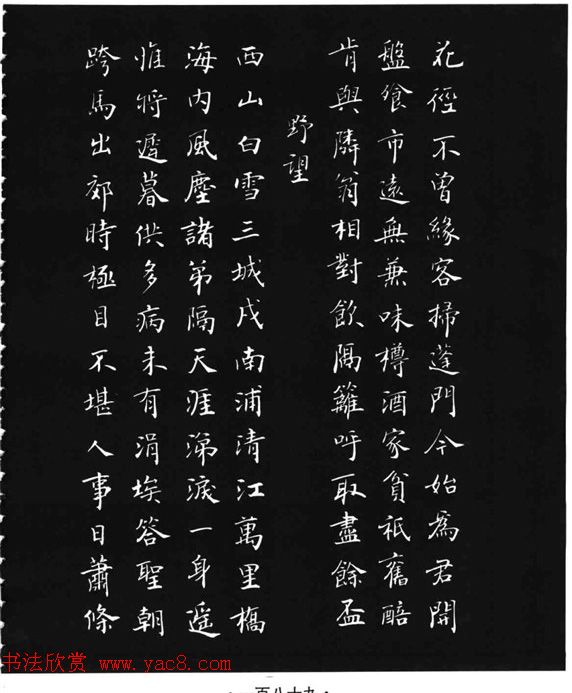 花徑不曾緣客掃蓬門今始為君開
盤飧市遠無兼味樽酒家貧祇舊醅
肯與隣翁相對飲隔籬呼取盡餘盃
野望
西山白雪三城戍南浦清江萬里橋
海内風塵諸弟隔天涯涕淚一身遥
惟將遲暮供多病未有涓埃答聖朝
跨馬出郊時極目不堪人事日蕭條
书法欣赏 www.yac8.com
·一百八十九·